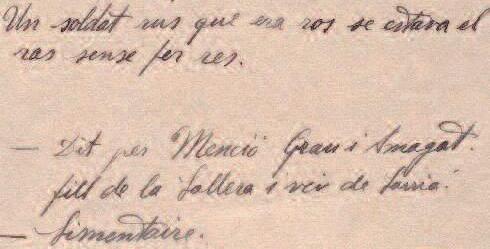 Un soldat rus que era ros se estava el
ras sense fer res.
— Dit per Menció Grau i Amagat.
fill de la Sallera i veí de Sarrià.
— Simentaire.